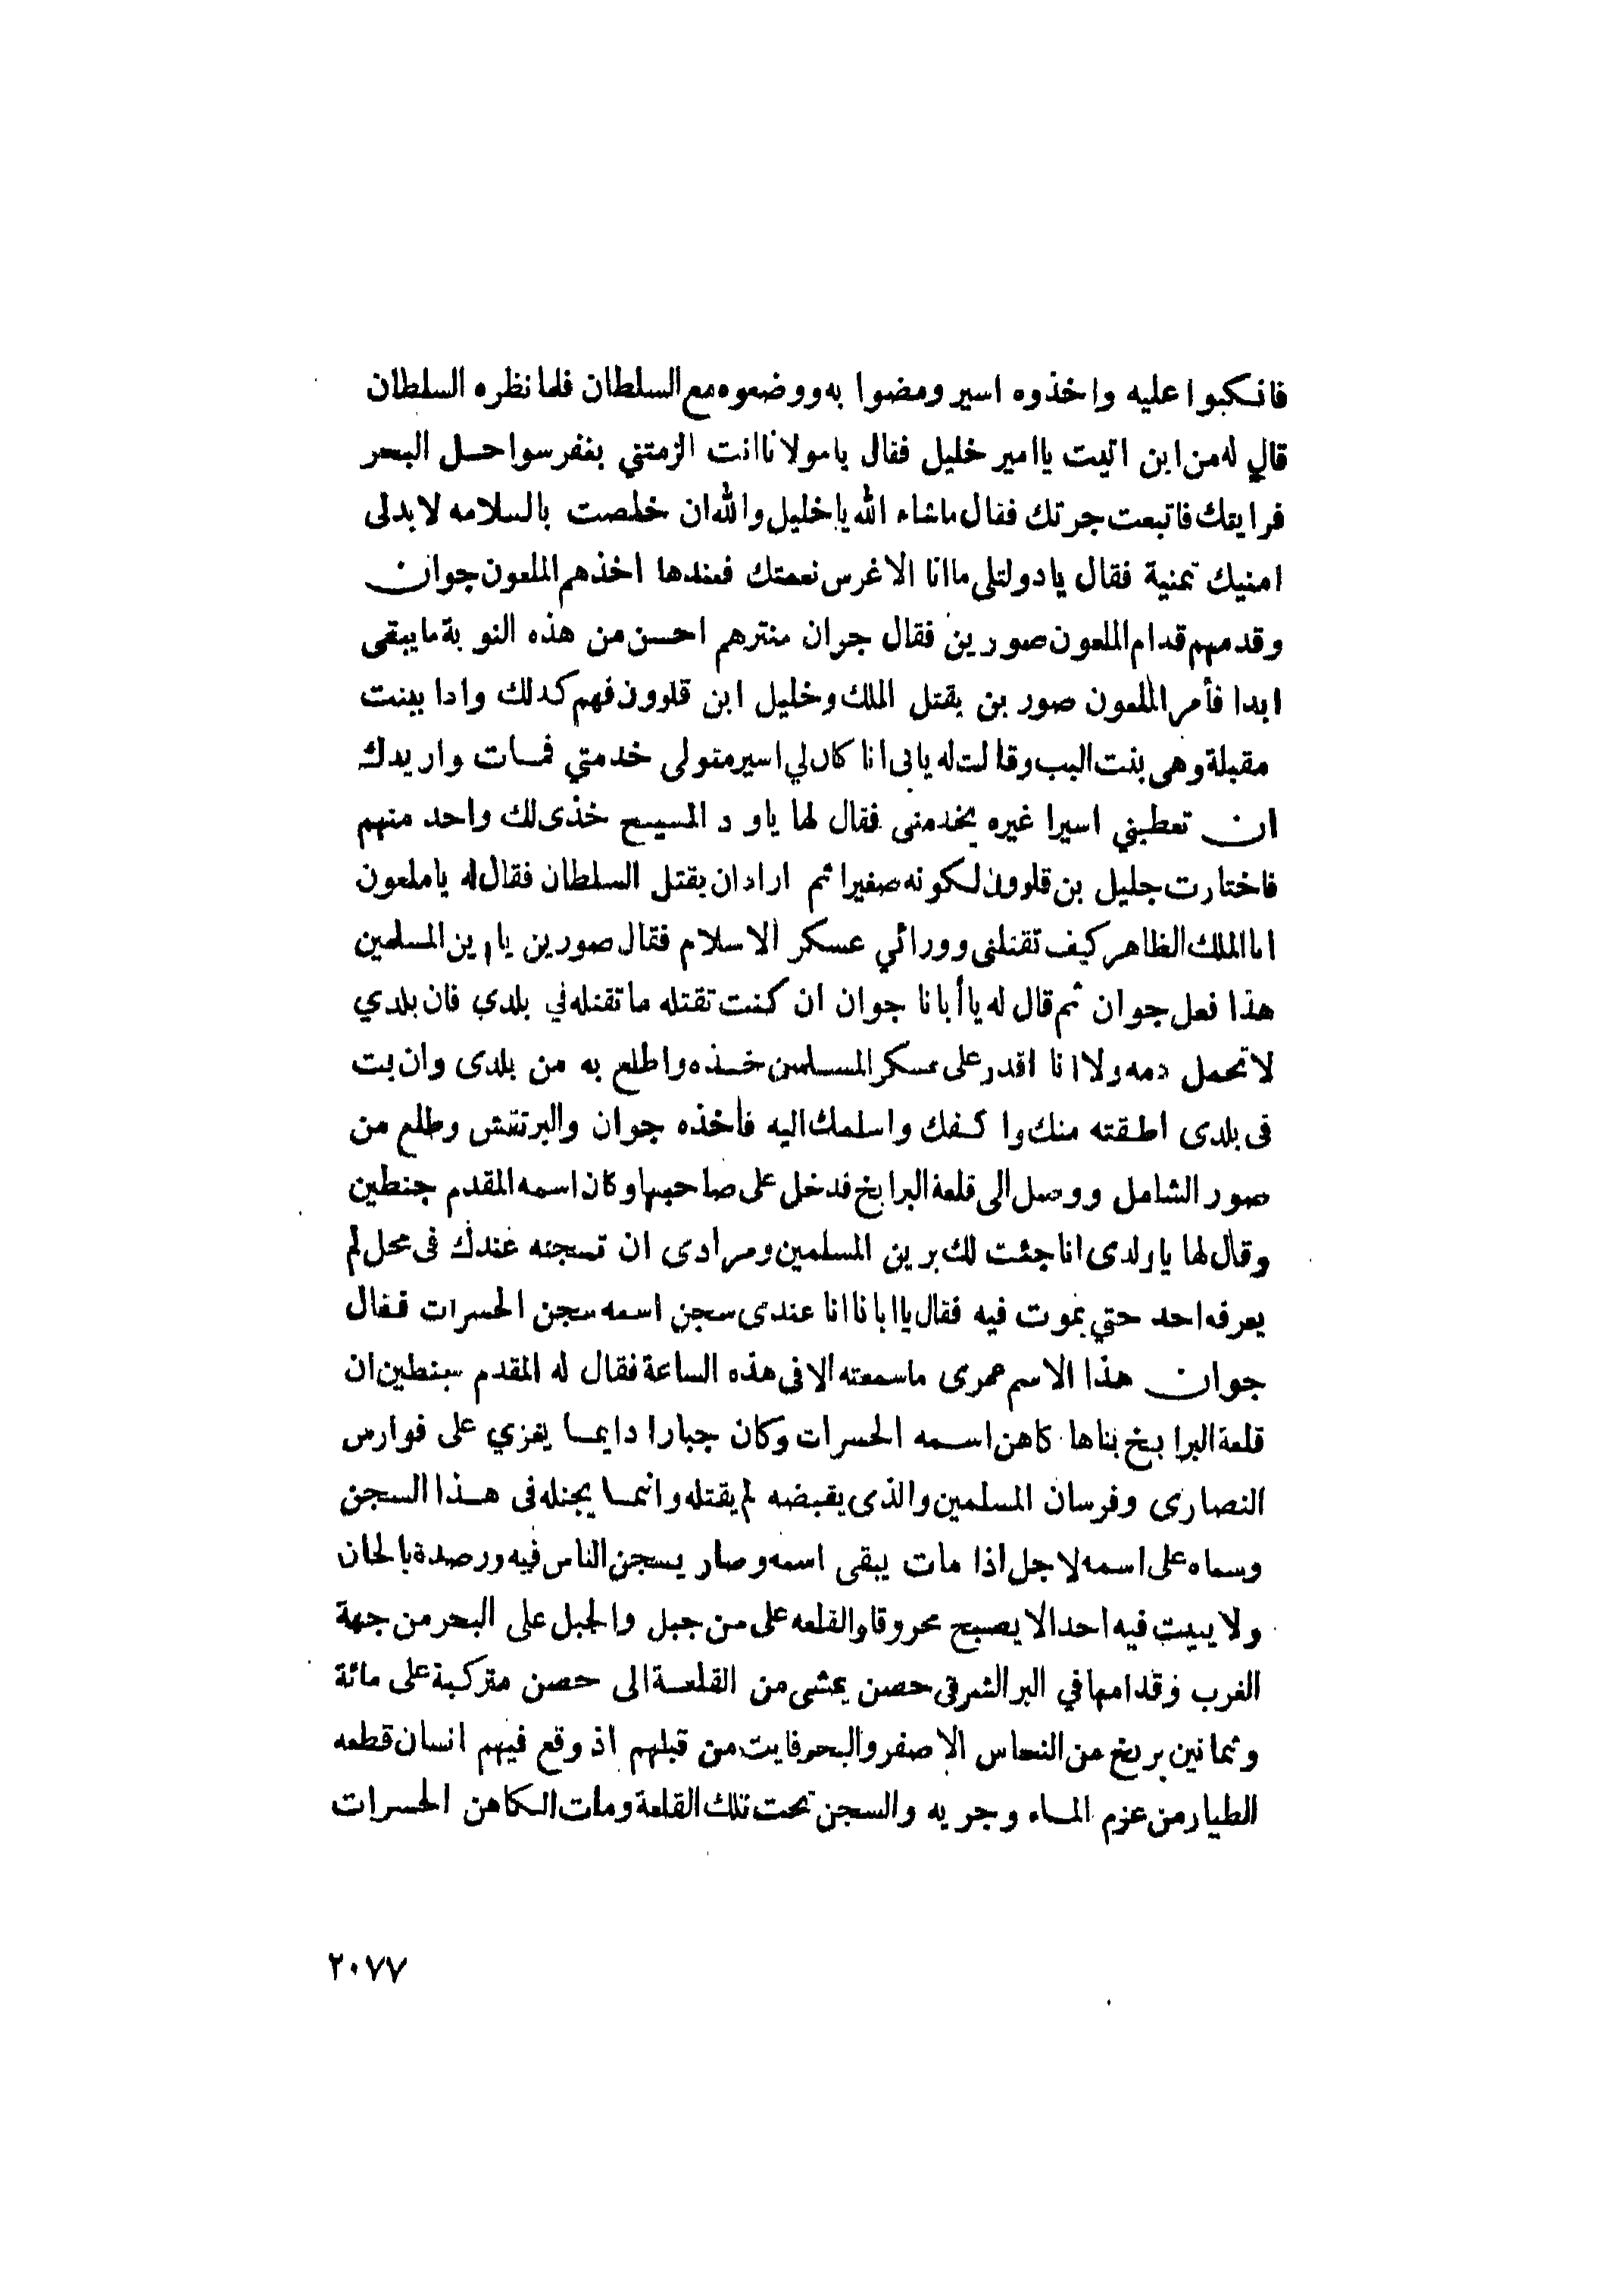 فانكبوا عليه واخذوه اسير ومضوا به ووضعوه مع السلطان فلما نظره السلطان
قال له من ابن اتيت ياامير خليل فقال يامولانا انت الزمتني بغفر سواحل البحر
فرايقك فاتبعت جرتك فقال ماشاء الله ياخليل والله ان خلصت بالسلامه لابدلى
امنيك تمنية فقال يادولتلى ماانا الا غرس نعمتك فعندها اخذهم الملعون جوان
وقدمهم قدام الملعون صورين فقال جران منترهم احسن من هذه النوبة مايبقى
ابدا فأمر الملعون صور بن يقتل الملك وخليل ابن قلوون فهم كدلك وادا ببنت
مقبلة وهى بنت البب وقالت له يابى انا كان لي اسير متولى خدمتي فمات واريدك
ان تعطيني اسيرا غيره يخدمنى فقال لها ياود المسيح خذى لك واحد منهم
فاختارت جليل بن قلوون لكونه صغيرا ثم ارادان يقتل السلطان فقال له ياملعون
اما الملك الظاهر كيف تقتلنى وورائي عسكر الاسلام فقال صورين يارين المسلمين
هذا فعل جوان ثم قال له ياأبانا جوان ان كنت تقتله ماتقتله في بلدي فان بلدي
لاتحمل دمه ولا انا اقدر على عسكر المسلمين خذه واطلع به من بلدى وان بت
فى بلدى اطقته منك وا كفك واسلمك اليه فأخذه جوان والبرتقش وطلع من
صور الشامل ووصل الى قلعة البرابخ فدخل على صاحبها وكان اسمه المقدم جنطين
وقال لها ياولدى انا جئت لك برين المسلمين ومرادى ان تسجنه عندك فى محل لم
يعرفه احد حتي يموت فيه فقال ياابانا انا عندى سجن اسمه سجن الحسرات فقال
جوان هذا الاسم عمرى ماسمعته الا فى هذه الساعة فقال له المقدم سبنطين ان
قلعة البرابخ بناها كاهن اسمه الحسرات وكان جبارا دايما يغزي على فوارس
النصارى وفرسان المسلمين والذى يقبضه لم يقتله وانما يجنله فى هذا السجن
وسماه على اسمه لاجل اذا مات يبقى اسمه وصار يسجن الناس فيه ورصدة بالحان
ولايبيت فيه احد الا يصبح محروقا والقلعه على من جبل والجبل على البحر من جهة
الغرب وقدامها في البر الشرقى حصن يمشى من القلعة الى حصن متركبة على مائة
وثمانين بربخ من النحاس الاصفر والبحر فايت من قبلهم اذ وقع فيهم انسان قطعه
الطيار من عزم الماء وجريه والسجن تحت تلك القلعة ومات الكاهن الحسرات
٢٠٧٧